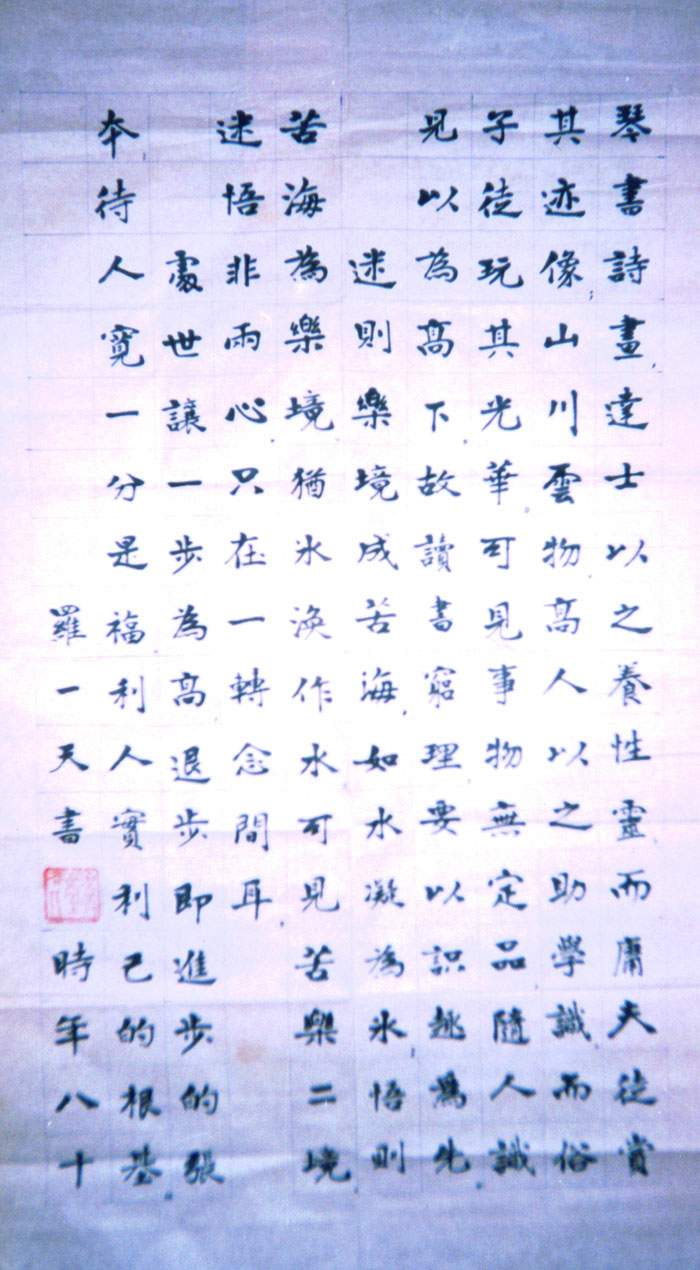 琴書詩畫達士以之養性靈而庸夫徒賞
其迹像山川雲物高人以之助學識而俗
子徒玩其光華可見事物無定品隨人識
見以為高下故讀書窮理要以識趣為先
迷則樂境成苦海如水凝為氷悟則
苦海為樂境猶氷渙作水可見苦樂二境
迷悟非兩心只在一轉念間耳
處世讓一步為高退步即進步的張
本待人寬一分是福利人實利己的根基
羅一天書 時年八十